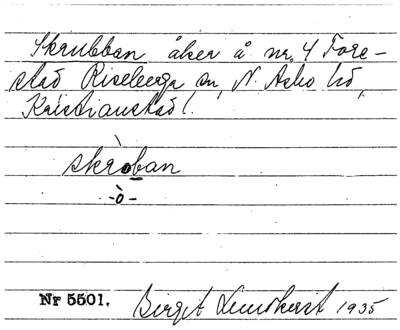 Skrubban åker å nr. 4 Fore-
stad Riseberga sn, N. Asbo hd,
Kristianstad l.
skròban
-ò-
Nr 5501. Birgit Lundkvist 1935